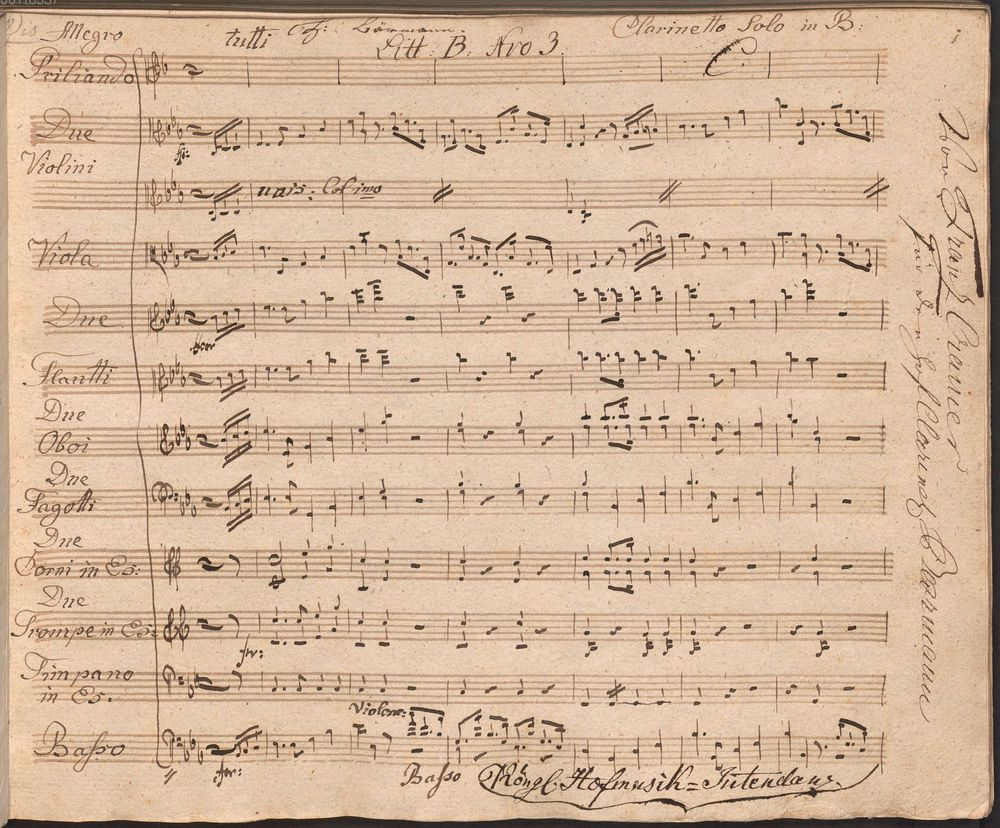 Allegro
tutti
Litt. B. Nro 3
Clarinetto Solo in B:
1
Briliando
Due
Violini
unis: Col imo
Viola
Due
Flautti
Due
Oboi
Due
Fagotti
Due
Corni in Es:
Due
Trompe in Es:
for:
Timpano
in Es.
Violonc:
Basso
for:
Basso
Köngl: Hofmusik=Intendanz
Von Franz Cramer
für den Hof Clarinet Bærmann